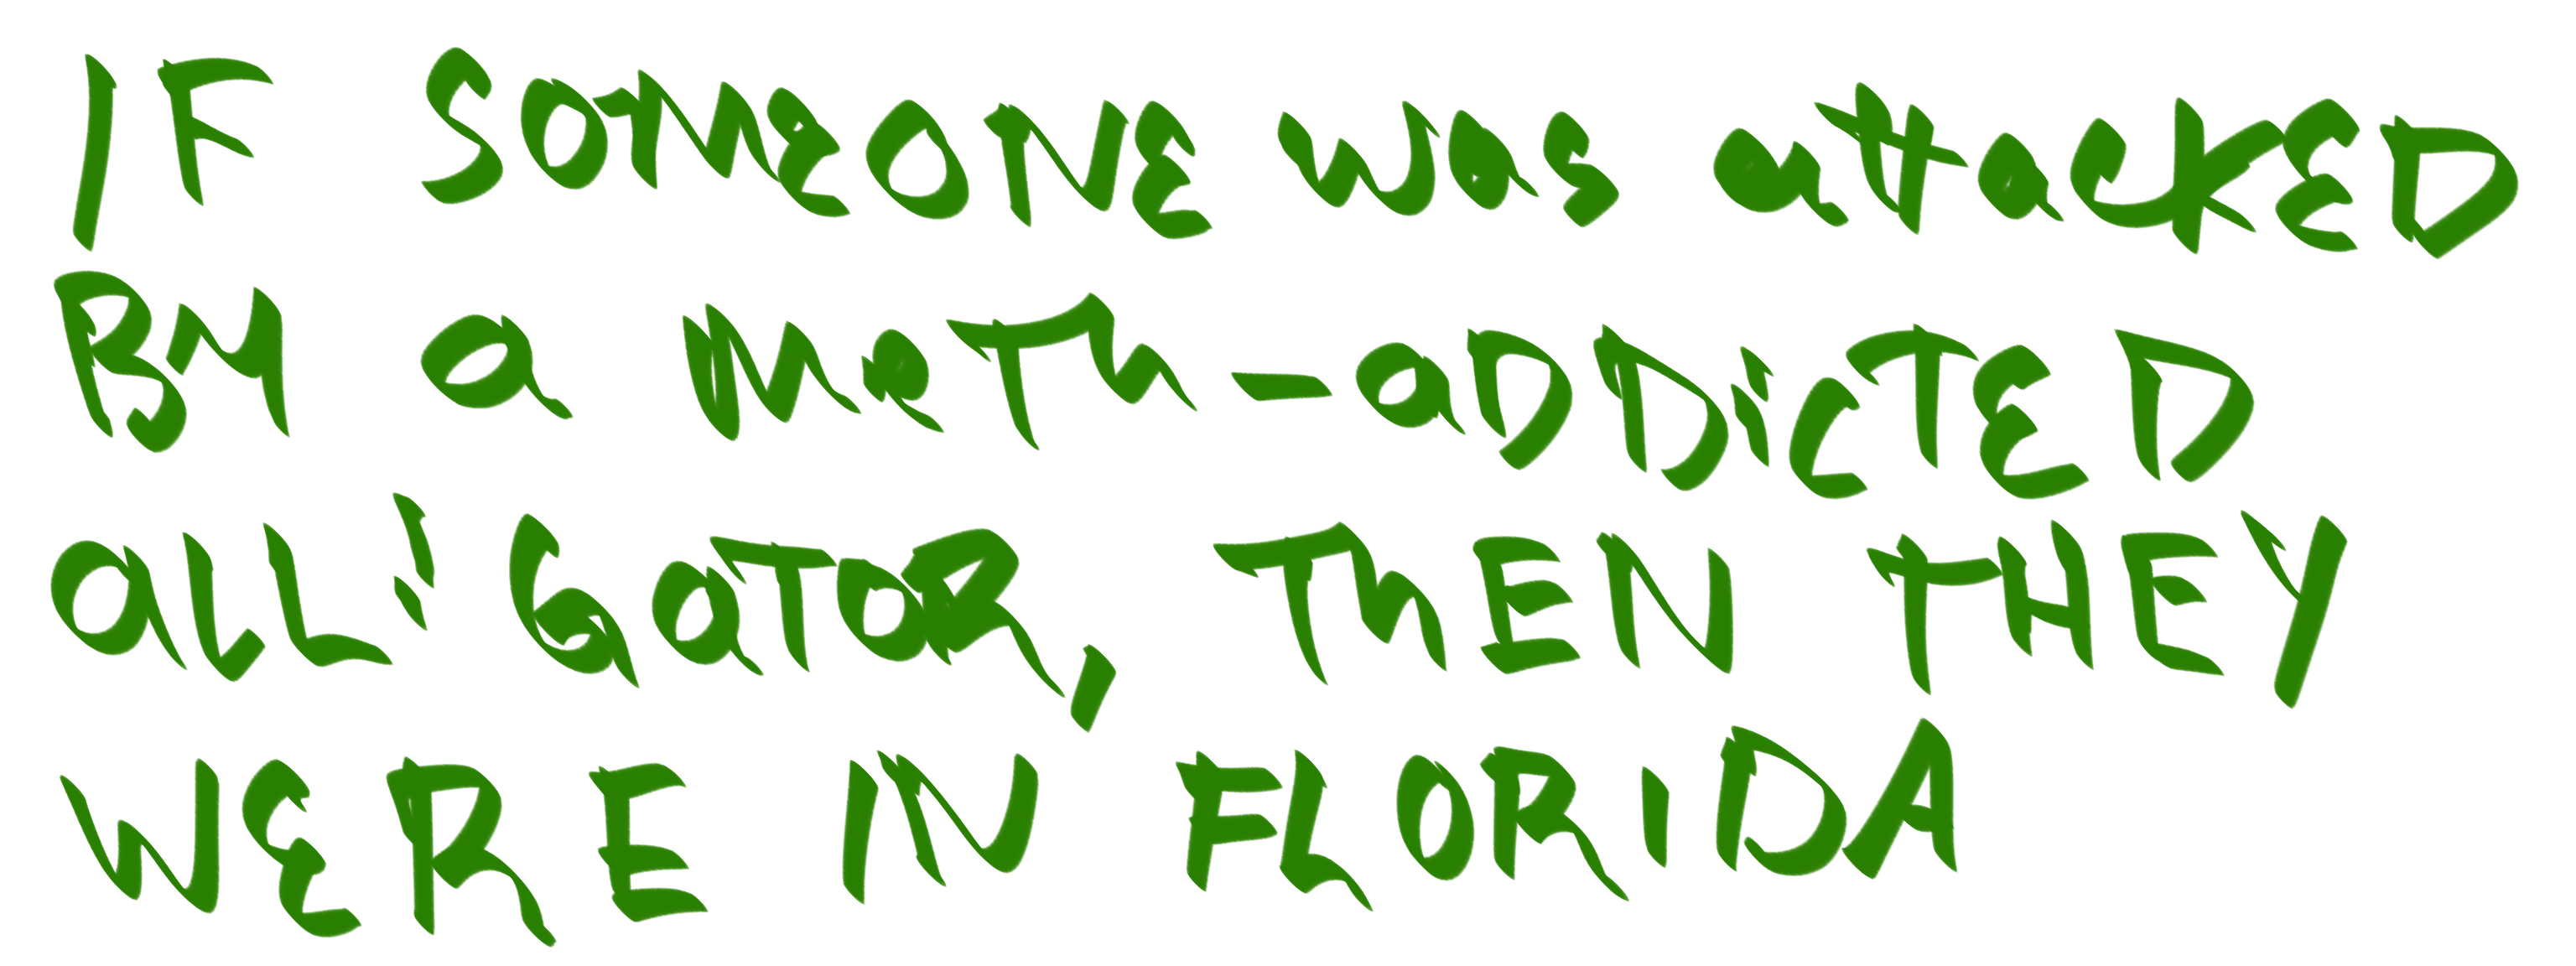 IF SOMEONE was attacKED
BY a meTh-aDDiCTED
aLLiGaTOR, ThEN THEY
WERE IN FLORIDA